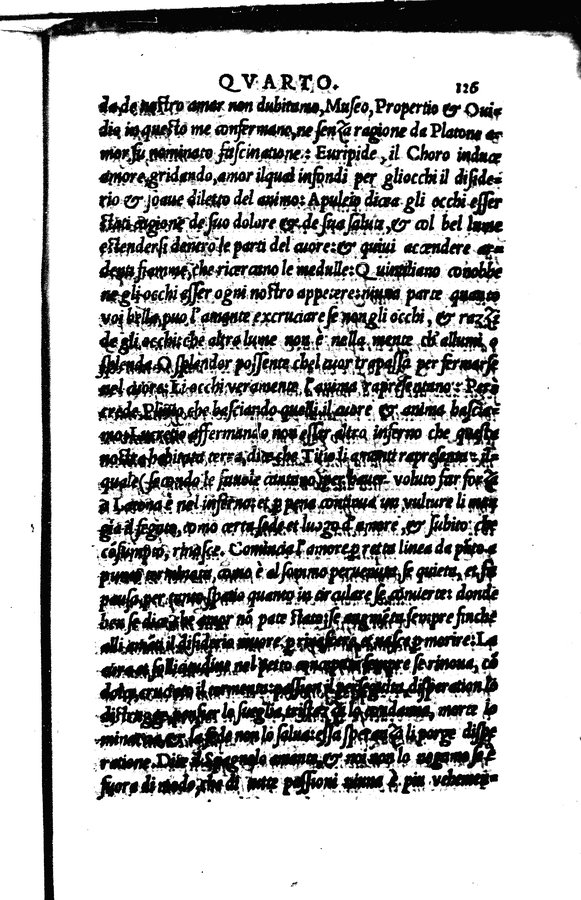 QVARTO. 126
da de nostro amar non dubitamo, Museo, Propertio & Oui-
dio in questo me confermano, ne senza ragione da Platone a-
mor fu nominato fascinatione: Euripide, il Choro induce
amore, gridando, amor ilqual infondi per gliocchi il diside-
rio & soaue diletto del animo: Apuleio dicea gli occhi esser
stati cagione de suo dolore & de sua salute, & col bel lume
estendersi dentro le parti del cuore: & quiui accendere ar-
denti fiamme, che ricercano le medulle: Quintiliano conobbe
ne gli occhi esser ogni nostro appetere: niuna parte quanto
voi bella, puo l'amante excruciare se non gli occhi, & razzi
de gli occhi: che altro lume non è nella mente ch'allumi, o
splenda. O splendor possente chel cuor trapassa per fermarse
nel cuore: Li occhi veramente l'anima rapresentano: Però
crede Plinio, che basciando quelli, il cuore & anima bascia-
mo: Lucretio affermando non esser altro inferno che questa
nostra habitata terra, dice che Titio li amanti representa: il-
quale (secondo le fauole cantano) per hauer voluto far forza
a Latona è nel inferno: et p pena continua un vulture li man
gia il fegato, como certa sede et luogo d'amore, & subito che
cósumpto, rinasce. Comincia l'amore p retta linea da púto a
punto terminata, como è al sommo peruenuta, se quieta, et fa
pausa, per tanto spatio quanto in circulare se conuerte: donde
ben se dice che amor nó pate stato: se augméta sempre finche
alli amáti il disiderio muore, p rinascere, et nasce p morire: La
cura et sollicitudine nel petto sempre se rinoua, có
dolor, cruciato il tormenta: passion il perseguita, disperation lo
distrugge, pensier lo sueglia, tristezza lo condanna, morte lo
minaccia, & la fede non lo salua: essa speranza li porge dispe
ratione. Dice il Spagnolo amante, & noi non lo negamo se è
fuora di modo, che di nate passioni niuna è piu vehemen-